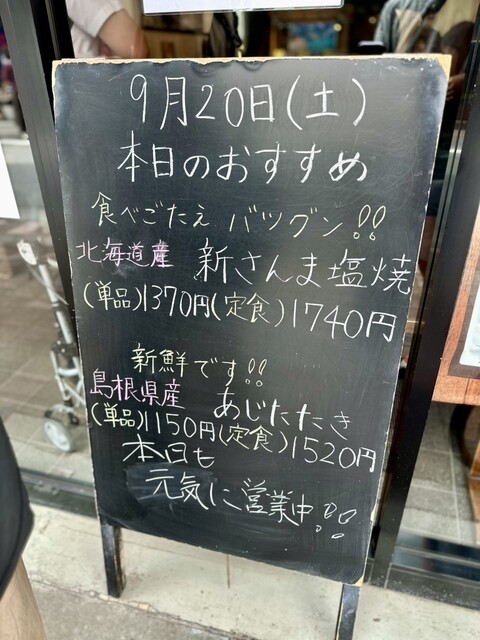 9月20日(土)
本日のおすすめ
食べごたえ バツグン!!
北海道産 新さんま塩焼
(単品)1370円(定食)1740円
新鮮です!!
島根県産 あじたたき
(単品)1150円(定食)1520円
本日も
元気に営業中!!